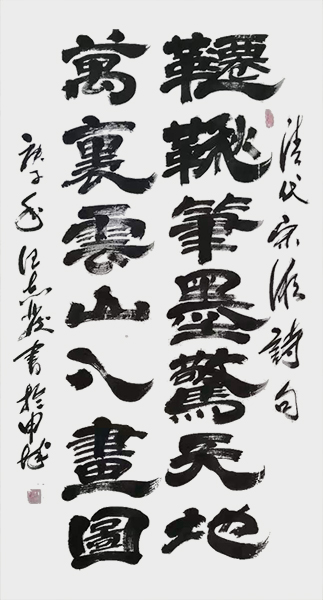 清代宋湘詩句
韆鞦筆墨驚天地
萬裏雲山入畫圖
庚子 汪志書於申城